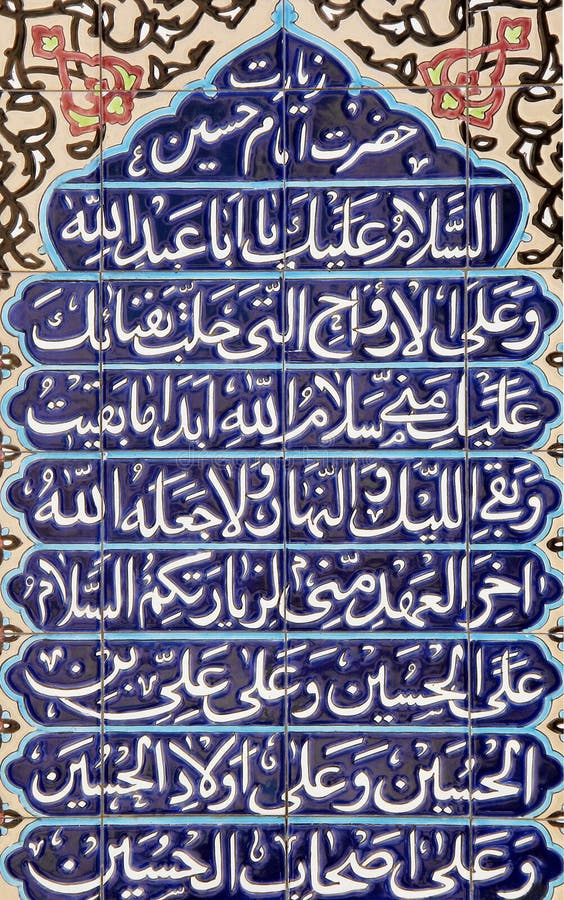 زیارت
حضرت امام حسین ع
السَّلامُ عَلَیكَ یا اَبا عَبدِ اللّٰهِ
وَعَلَی الاَرْوٰاحِ الَّتی حَلَّت بِفِنٰائِكَ
عَلَیكَ مِنّی سَلامُ اللّٰهِ اَبَداً مٰا بَقیتُ
وَ بَقِیَ اللَّیلُ وَ النَّهارُ وَلا جَعَلَهُ اللّٰهُ
اٰخِرَ العَهدِ مِنّی لِزِیارَتِکُم السَّلامُ
عَلَی الحُسَین وَ عَلی عَلیِّ بنِ
الحُسَین وَ عَلی اَولادِ الحُسَین
وَ عَلی اَصحابِ الحُسَین